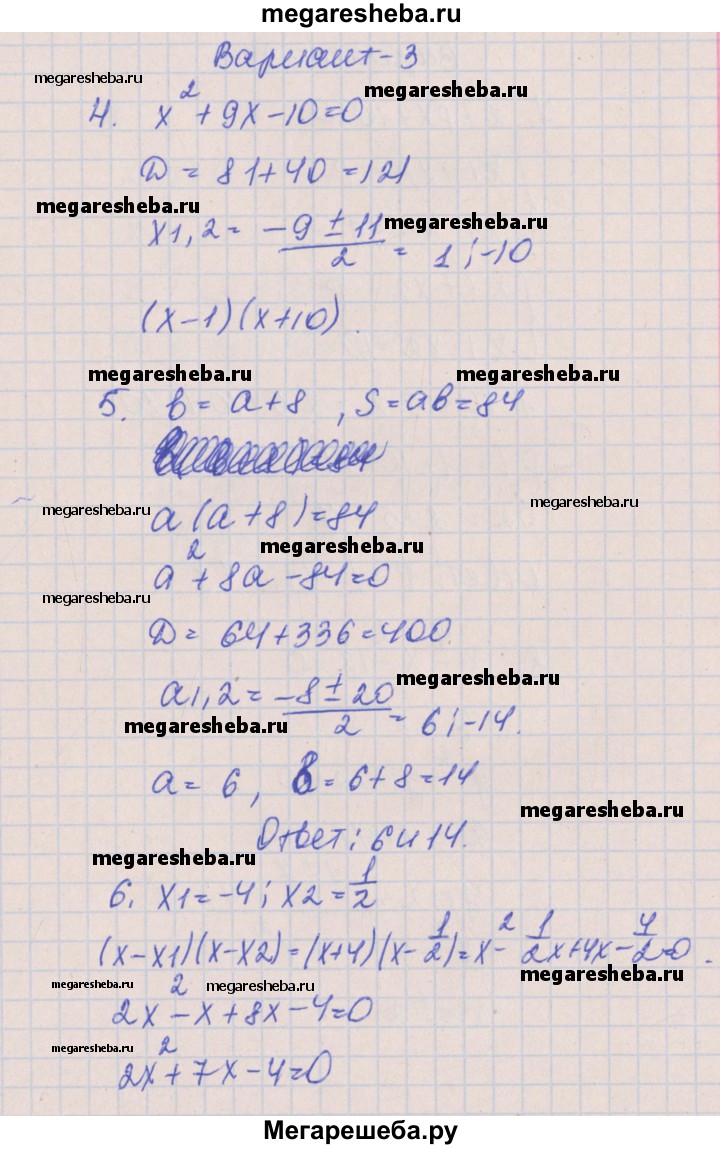 megaresheba.ru
Вариант-3
megaresheba.ru
megaresheba.ru
4. x² + 9x - 10 = 0
D = 81 + 40 = 121
megaresheba.ru
megaresheba.ru
x1,2 = (-9 ± 11)/2 = 1; -10
(x-1)(x+10).
megaresheba.ru
megaresheba.ru
5. b = a + 8, S = ab = 84
megaresheba.ru
megaresheba.ru
a(a+8) = 84
megaresheba.ru
a² + 8a - 84 = 0
megaresheba.ru
D = 64 + 336 = 400.
megaresheba.ru
a1,2 = (-8 ± 20)/2 = 6; -14.
megaresheba.ru
a = 6, b = 6 + 8 = 14
megaresheba.ru
Ответ: 6 и 14.
megaresheba.ru
6. x1 = -4; x2 = 1/2
(x-x1)(x-x2) = (x+4)(x-1/2) = x² - 1/2x + 4x - 4/2 = 0.
megaresheba.ru
megaresheba.ru
megaresheba.ru
2x² - x + 8x - 4 = 0
megaresheba.ru
2x² + 7x - 4 = 0
Мегарешеба.ру